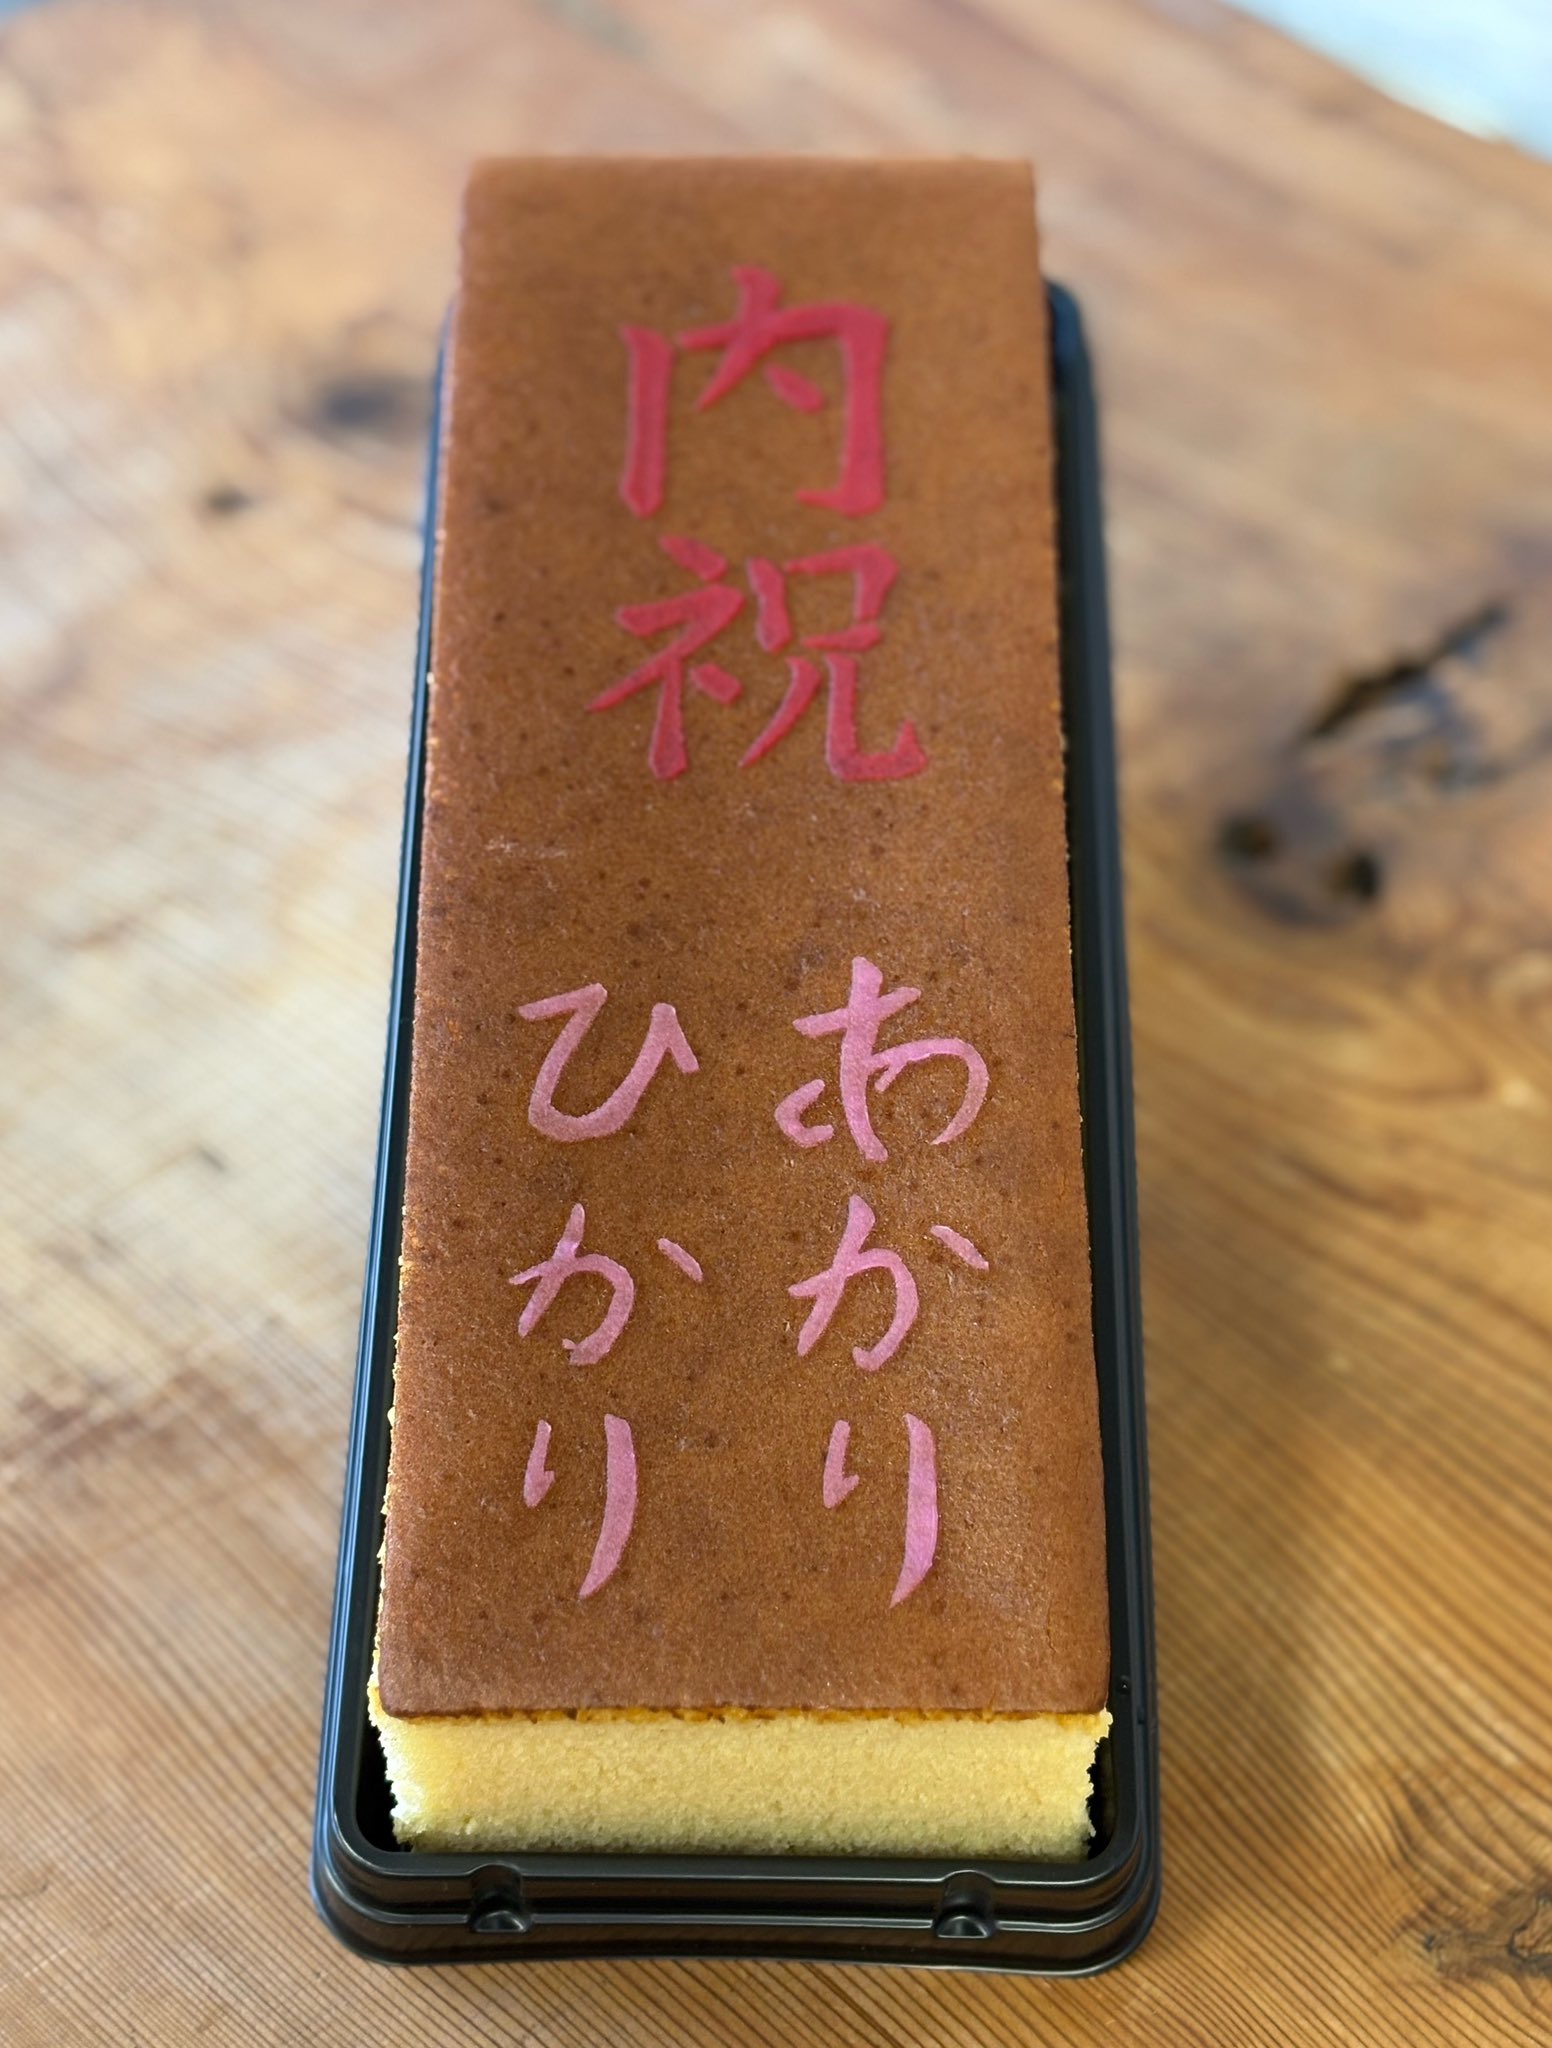 内祝
あかり
ひかり